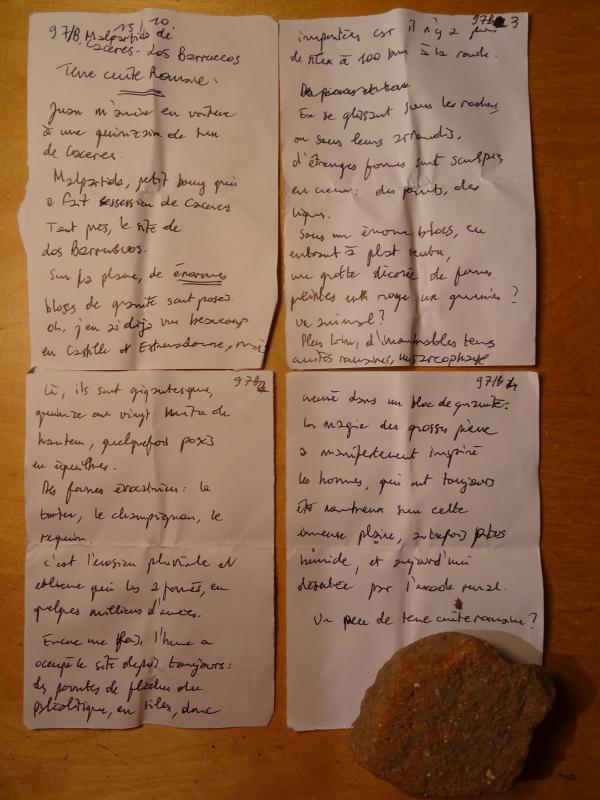 97/B. Malpartida de 15/10.
Caceres - Los Barruecos
Terre cuite Romane.
Juan m'amène en voiture
à une quinzaine de km
de Caceres.
Malpartida, petit bourg qui
a fait sesession de Caceres
Tout près, le site de
Los Barruecos.
Sur la plaine, de énormes
blocs de granite sont posés.
Oh, j'en ai déjà vu beaucoup
en Castille et Extremadoure, mais
97b2
là, ils sont gigantesques,
quinze ou vingt mètres de
hauteur, quelquefois posés
en équilibre.
Des formes évocatrices : la
tortue, le champignon, le
requin.
C'est l'érosion pluviale et
éolienne qui les a formés, en
quelques milliers d'années.
Encore une fois, l'homme a
occupé le site depuis toujours :
des pointes de flèches du
paléolitique, en silex, donc
97b 3
importées car il n'y a pas
de silex à 100 kms à la ronde.
En se glissant sous les roches,
ou sous leurs arrondis,
d'étranges formes sont sculptées
en creux : des points, des
lignes.
Sous un énorme bloc, en
entrant à plat ventre,
une grotte décorée de formes
peintes en rouge un guerrier ?
un animal ?
Plus loin, d'innombrables terres
cuites romaines, un sarcophage
97/b 4
creusé dans un bloc de granite.
La magie des grosses pierres
a manifestement inspiré
les hommes, qui ont toujours
été nombreux sur cette
immense plaine, autrefois plus
humide, et aujourd'hui
désertée par l'exode rural.
Un peu de terre cuite romaine ?